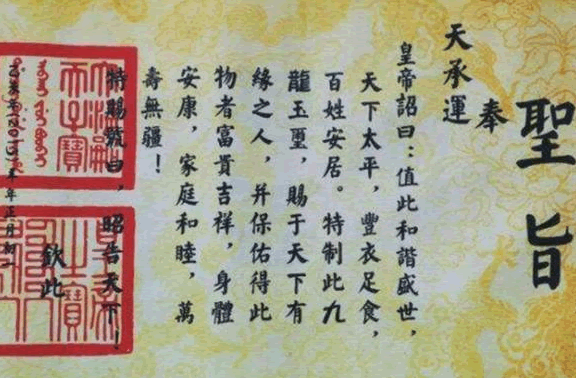 聖旨
奉
天承運
皇帝詔曰：值此和諧盛世，
天下太平，豐衣足食，
百姓安居。特制此九
龍玉璽，賜于天下有
緣之人，并保佑得此
物者富貴吉祥，身體
安康，家庭和睦，萬
壽無疆！
特賜號曰，昭告天下！
欽此
年正月初一